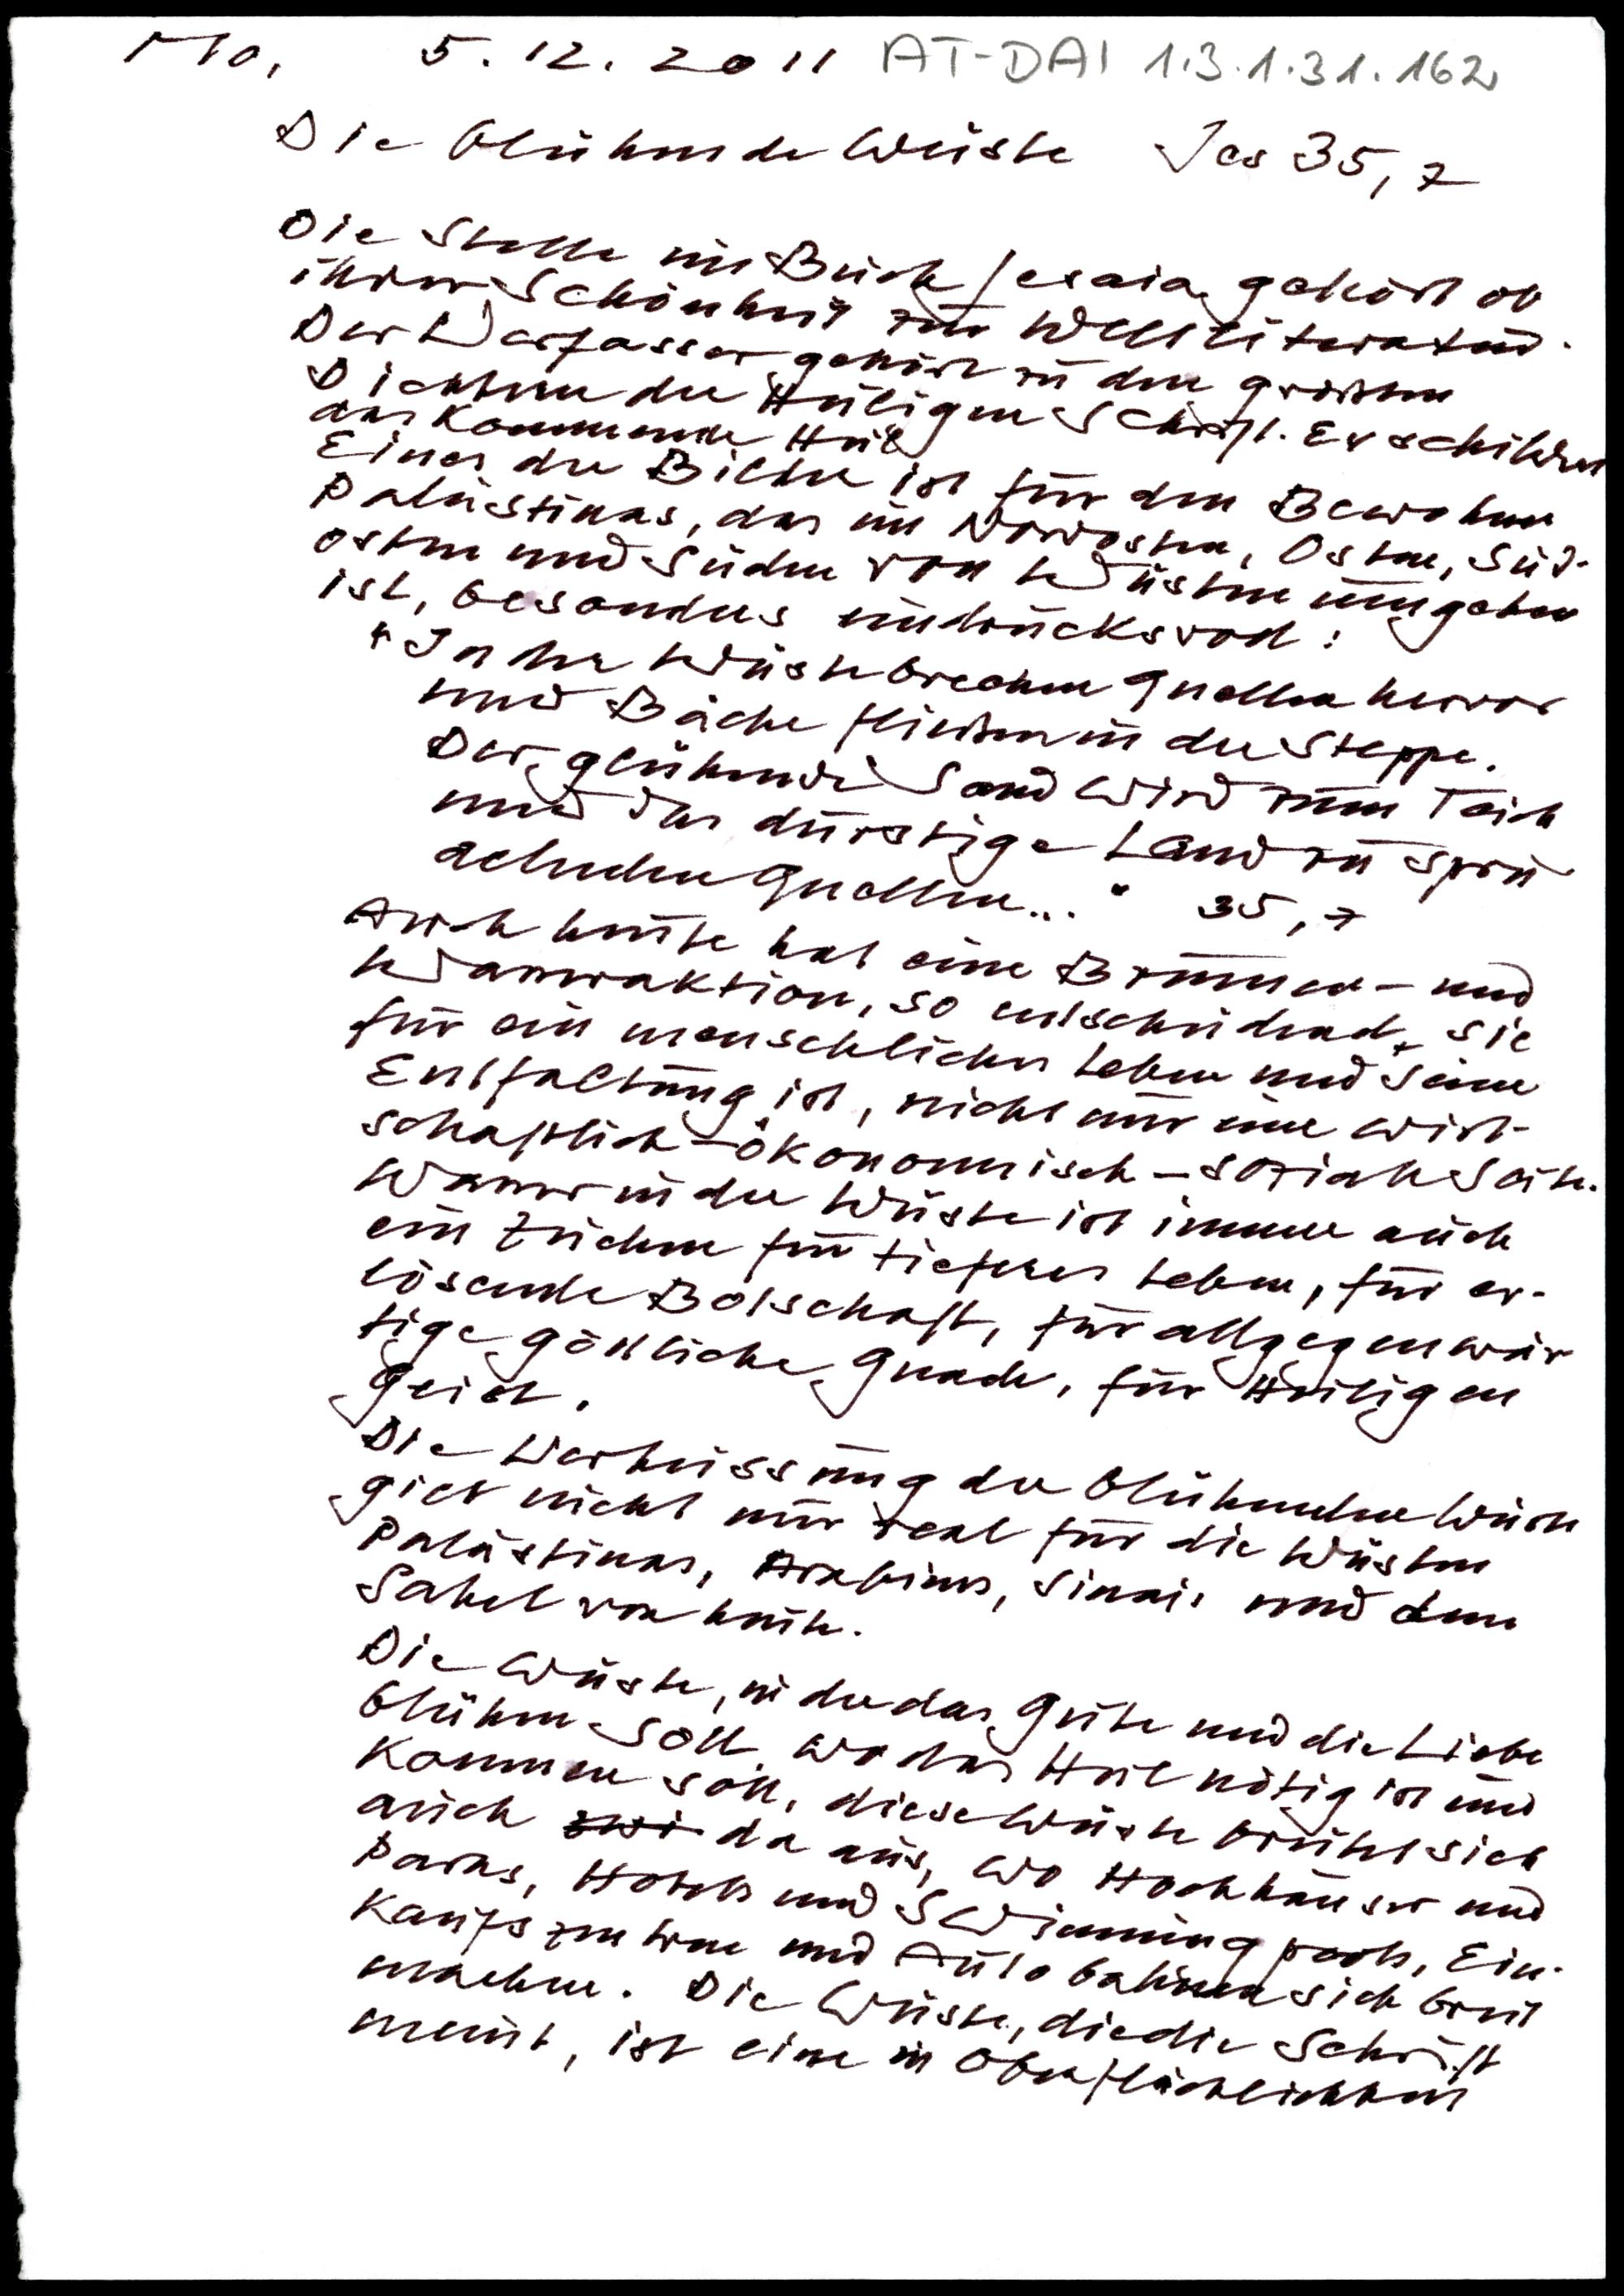 Mo, 5.12.2011 AT-DAI 1.3.1.31.162
Die blühende Wüste Jes 35,7
Die Stelle im Buch Jesaia gehört ob
ihrer Schönheit zur Weltliteratur.
Der Verfasser gehört zu den großen
Dichtern der Heiligen Schrift. Er schildert
das kommende Heil
Eines der Bilder ist für den Bewohner
Palästinas, das im Nordosten, Osten, Süd-
osten und Süden von Wüsten umgeben
ist, besonders eindrucksvoll:
"In der Wüste brechen Quellen hervor
und Bäche fließen in der Steppe.
Der glühende Sand wird zum Teich
und das durstige Land zu spru-
delnden Quellen..." 35,7
Auch heute hat eine Brunnen- und
Wasseraktion, so entscheidend sie
für ein menschliches Leben und seine
Entfaltung ist, nicht nur eine wirt-
schaftlich-ökonomisch-soziale Seite.
Wasser in der Wüste ist immer auch
ein Zeichen für tieferes Leben, für er-
lösende Botschaft, für allgegenwär
tige göttliche Gnade, für Heiligen
Geist.
Die Verheissung der blühenden Wüste
gilt nicht nur real für die Wüsten
Palästinas, Arabiens, Sinais und dem
Sahel von heute.
Die Wüste, in der das Gute und die Liebe
blühen soll, wo das Heil nötig ist und
kommen soll, diese Wüste breitet sich
auch da aus, wo Hochhäuser und
Parks, Hotels und Swimmingpools, Ein-
kaufszentren und Autobahnen sich breit
machen. Die Wüste, die die Schrift
meint, ist eine in Oberflächlichkeit